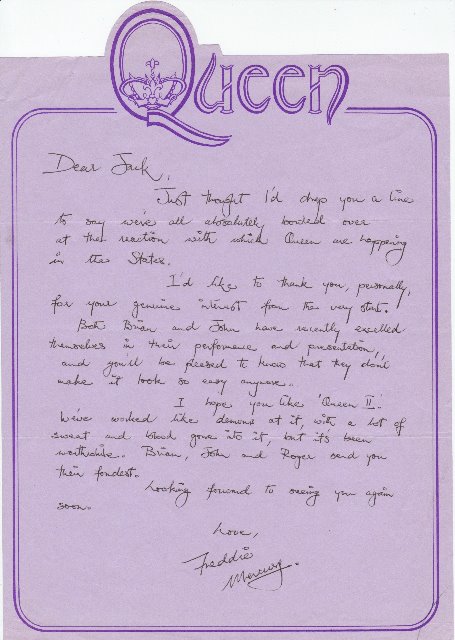 Queen
Dear Jack,
Just thought I'd drop you a line
to say we're all absolutely bowled over
at the reaction with which Queen are happening
in the States.
I'd like to thank you, personally,
for your genuine interest from the very start.
Both Brian and John have recently excelled
themselves in their performance and presentation,
and you'll be pleased to know that they don't
make it look so easy anymore.
I hope you like 'Queen II'.
We've worked like demons at it, with a lot of
sweat and blood gone into it, but it's been
worthwhile. Brian, John and Roger send you
their fondest.
Looking forward to seeing you again
soon.
Love,
Freddie
Mercury.